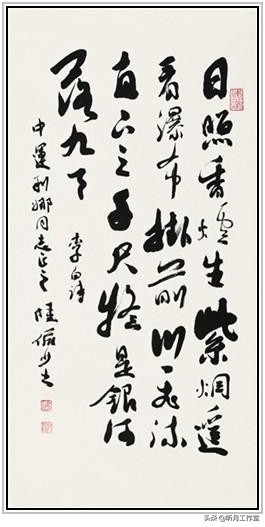 日照香炉生紫烟遥
看瀑布掛前川飛流
直下三千尺疑是銀河
落九天
李白詩
中運利娜同志正之 陸儼少书
头条 @听月工作室